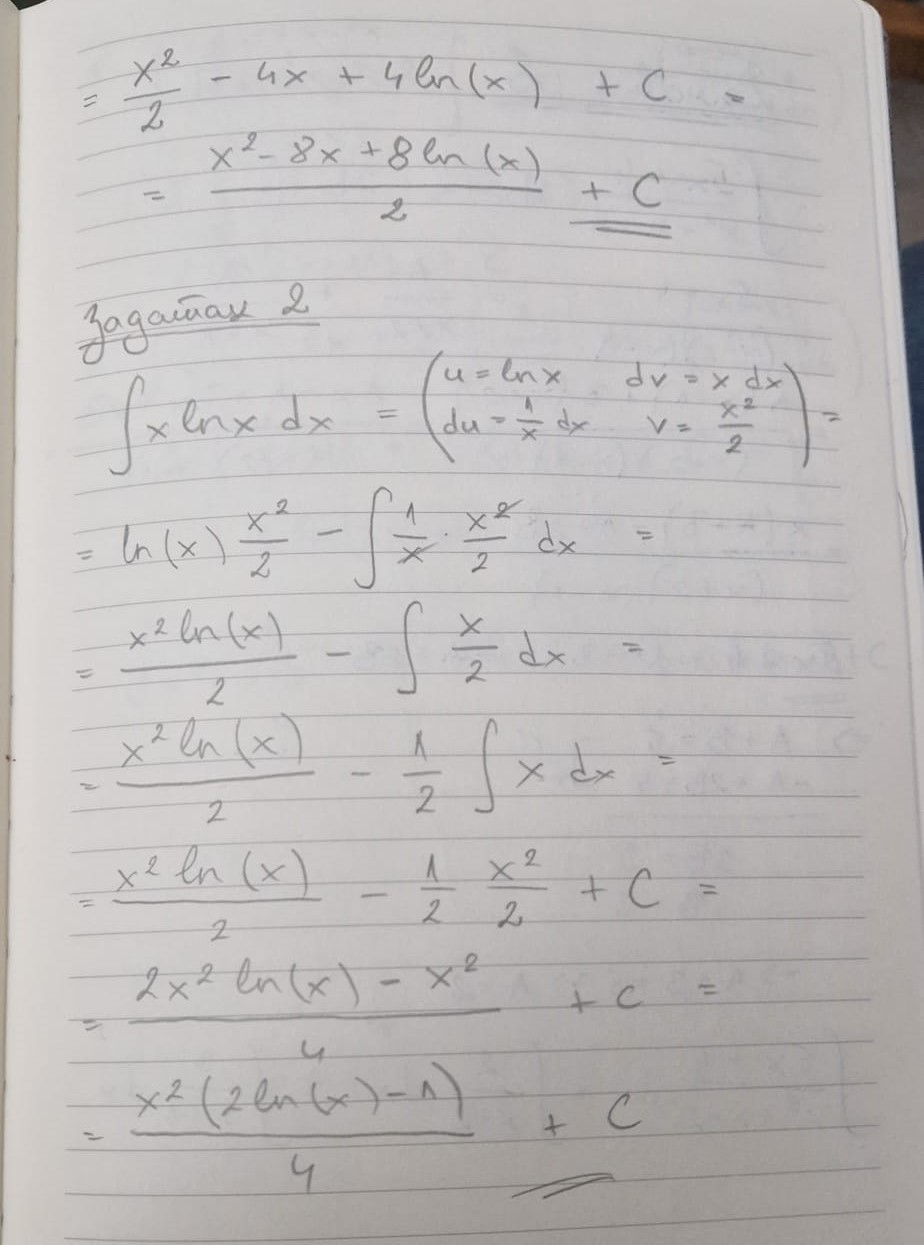 = x²/2 - 4x + 4 ln(x) + C =
= (x² - 8x + 8 ln(x))/2 + C
Задатак 2
∫ x ln x dx = (u = ln x dv = x dx
du = 1/x dx v = x²/2) =
= ln(x) x²/2 - ∫ 1/x · x²/2 dx =
= x² ln(x)/2 - ∫ x/2 dx =
= x² ln(x)/2 - 1/2 ∫ x dx =
= x² ln(x)/2 - 1/2 x²/2 + C =
= (2x² ln(x) - x²)/4 + C =
= x² (2 ln(x) - 1)/4 + C